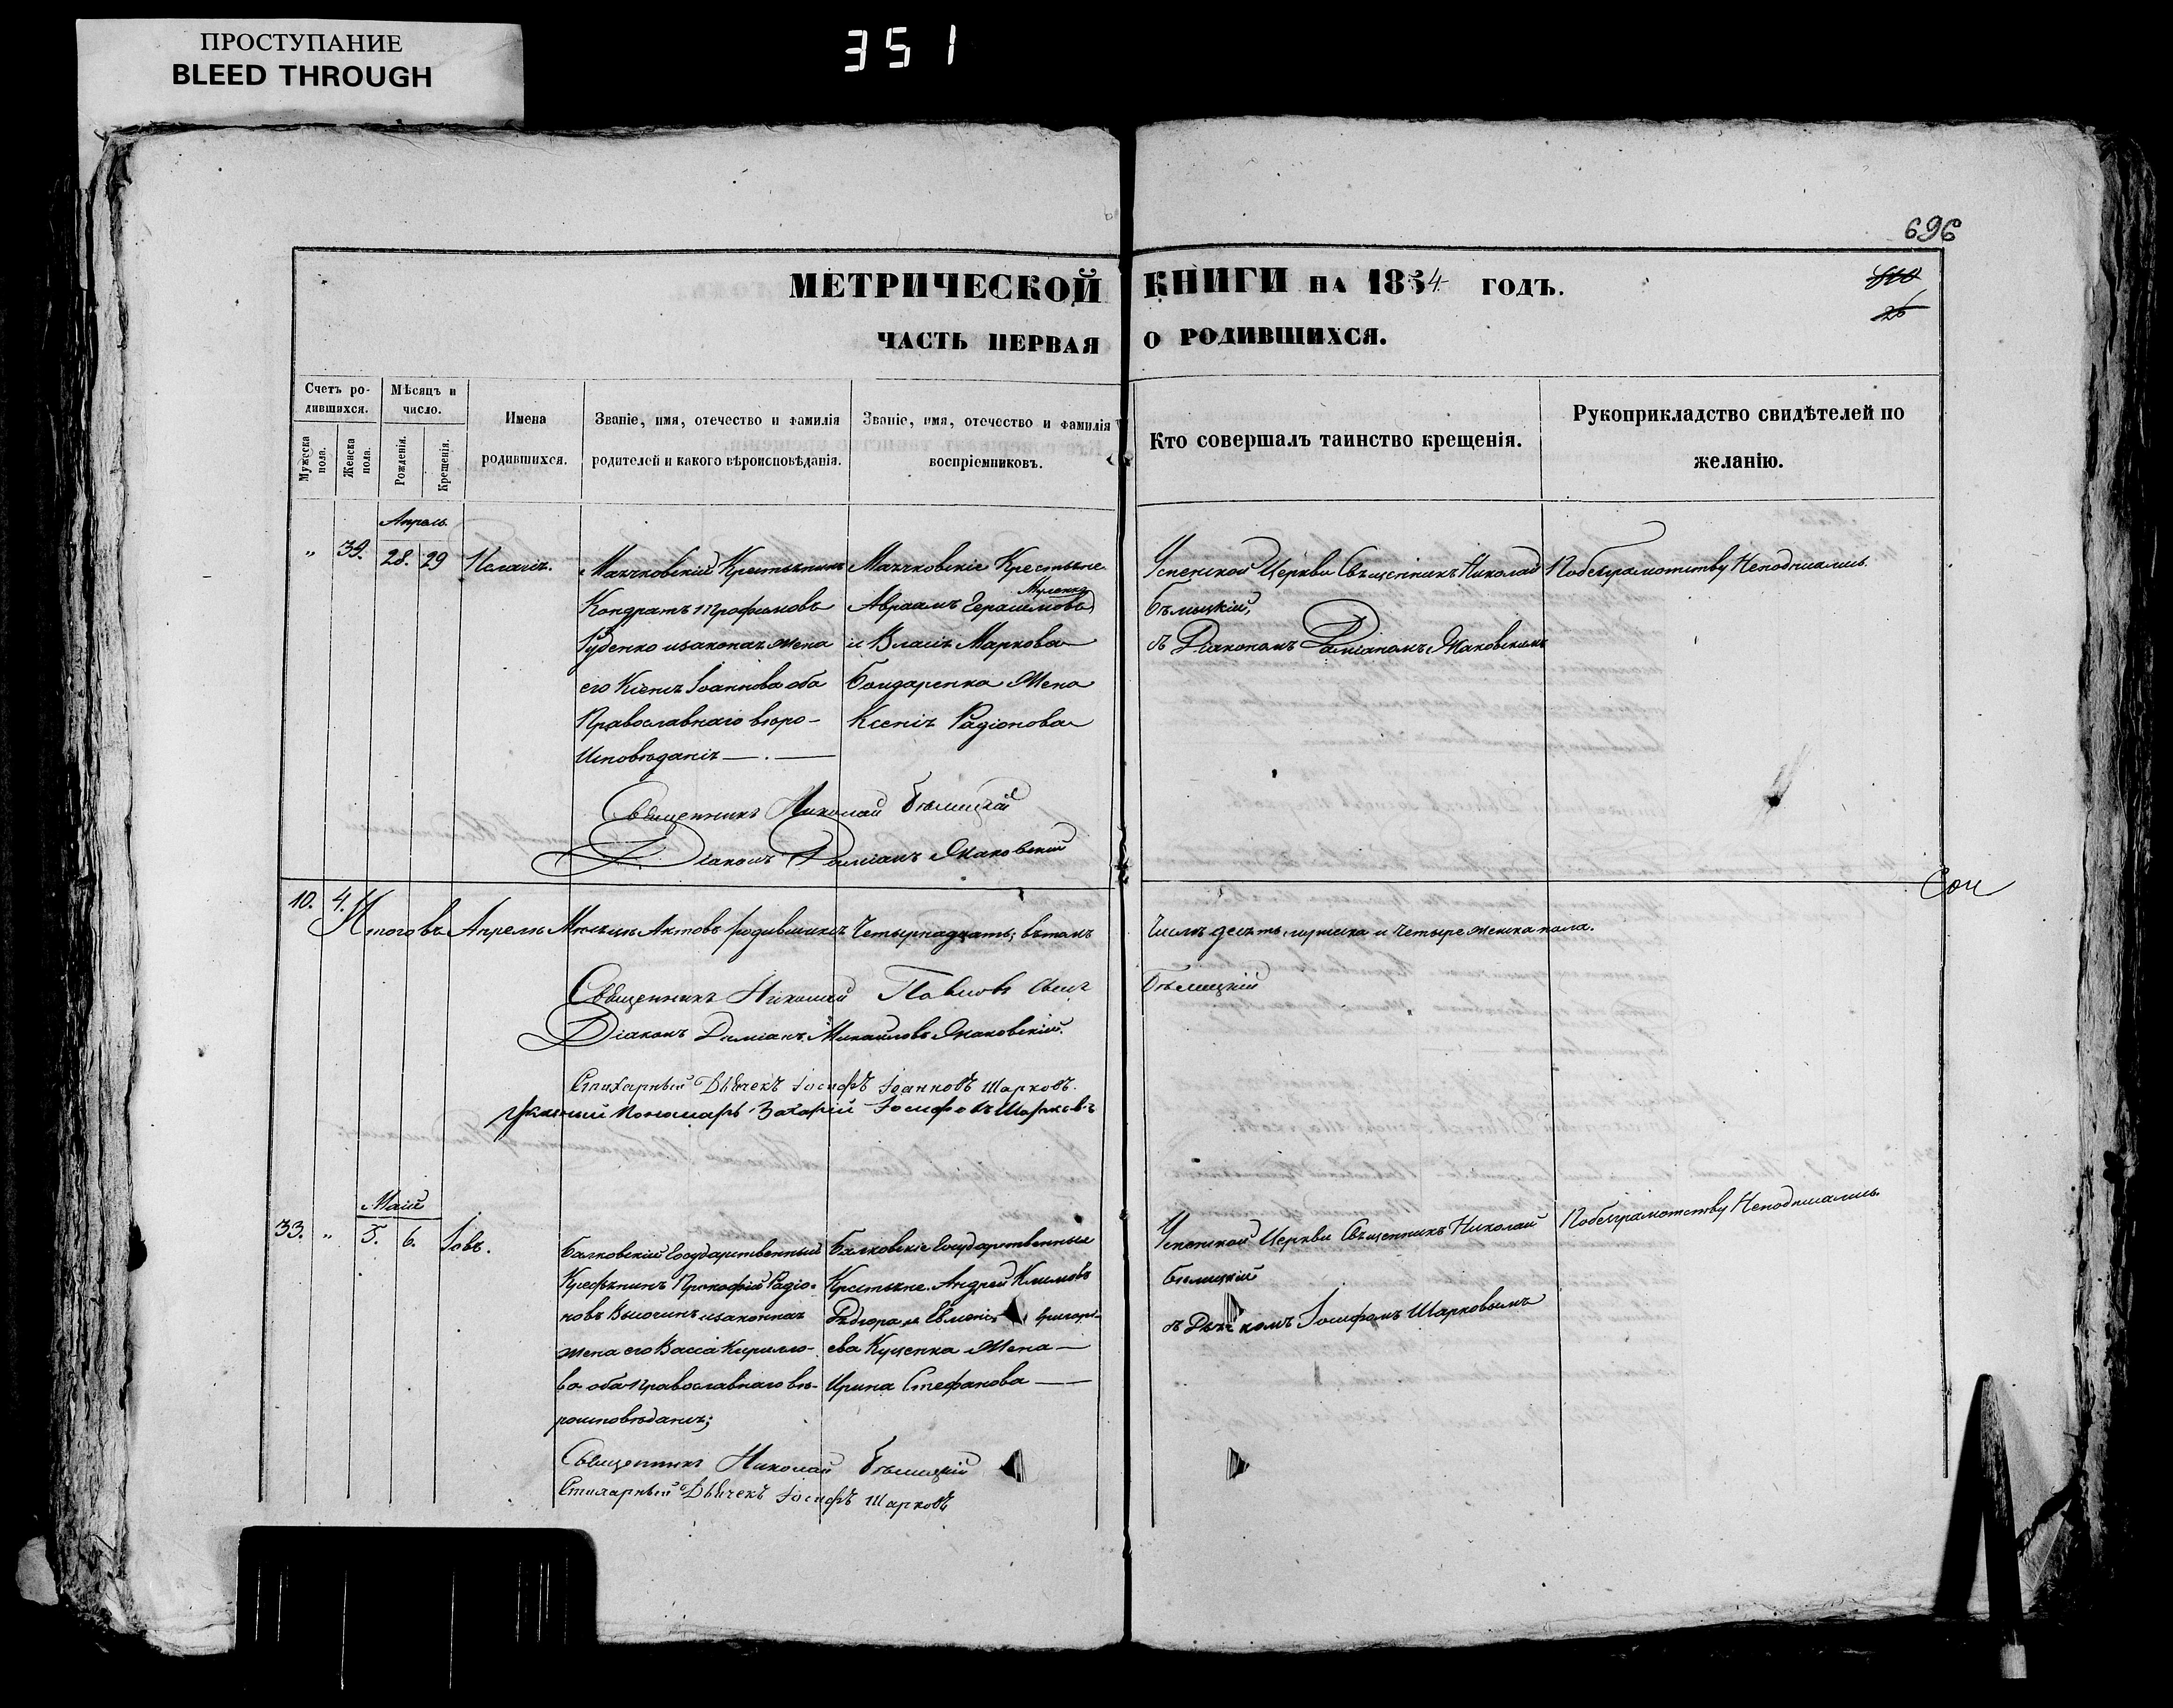 ПРОСТУПАНИЕ
BLEED THROUGH
351
696
МЕТРИЧЕСКОЙ КНИГИ НА 1854 ГОДЪ.
26
ЧАСТЬ ПЕРВАЯ О РОДИВШИХСЯ.
Счетъ ро-
дившихся.
Мужеска
пола.
Женска
пола.
Мѣсяцъ и
число.
Рожденія.
Крещенія.
Имена
родившихся.
Званіе, имя, отечество и фамилія
родителей и какого вѣроисповѣданія.
Званіе, имя, отечество и фамилія
воспріемниковъ.
Кто совершалъ таинство крещенія.
Рукоприкладство свидѣтелей по
желанію.
Апрель
„ 39. 28. 29
Крестьянинъ
Кондратъ Трофимовъ
Руденко и законная жена
его Ксенія Іоаннова оба
Православнаго вѣро-
исповѣданія
Крестьяне
Авраамъ Герасимовъ
и Власія Маркова
Бондаренка Жена
Ксенія Радіонова
Успенской Церкви Священникъ Николай
Бѣлицкій,
съ Діакономъ Даміаномъ Жаковскимъ
По безграмотству Неподписались.
Священникъ Николай Бѣлицкій
Діаконъ Даміанъ Жаковскій
10. 4.
Итого въ Апрелѣ Мѣсяцѣ Актовъ родившихся Четырнадцать; въ томъ числѣ десять мужеска и Четыре женска пола.
Священникъ Николай Павловъ сынъ Бѣлицкій
Діаконъ Даміанъ Михаиловъ Жаковскій.
Стихарный Дьячекъ Іосифъ Іоанновъ Шарковъ.
Пономарь Захарій Іосифовъ Шарковъ
Маій
33. „ 5. 6. Іовъ.
Балковскій Государственный
Крестьянинъ Прокофій Радіо-
новъ и законная
жена его Васса Кирилло-
ва оба Православнаго вѣ-
роисповѣданія;
Балковскіе Государственные
Крестьяне Андрей Климовъ
Григорі-
ева Куценка Жена
Ирина Стефанова
Успенской Церкви Священникъ Николай
Бѣлицкій
съ Дьячкомъ Іосифомъ Шарковымъ
По безграмотству Неподписались.
Священникъ Николай Бѣлицкій
Стихарный Дьячекъ Іосифъ Шарковъ